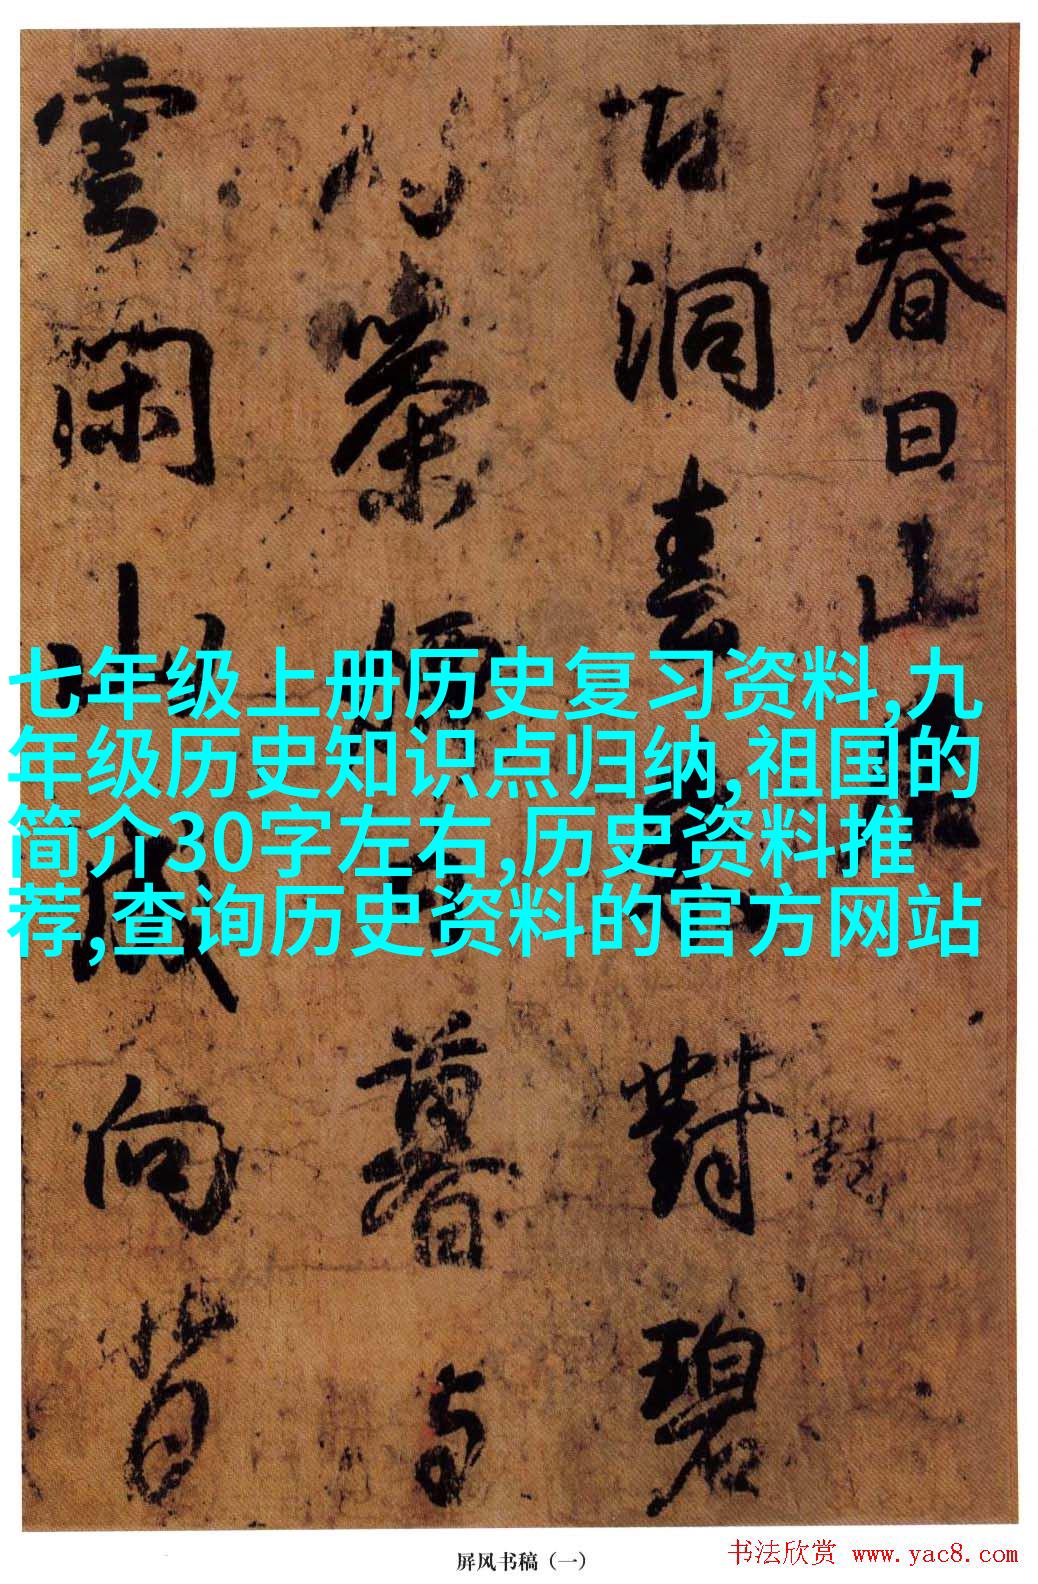 春日山
古洞春對碧
對
茶煙暮与
雲閑山成向背
七年级上册历史复习资料,九
年级历史知识点归纳,祖国的
简介30字左右,历史资料推
荐,查询历史资料的官方网站
屏风书稿（一）
书法欣赏 www.yac8.com